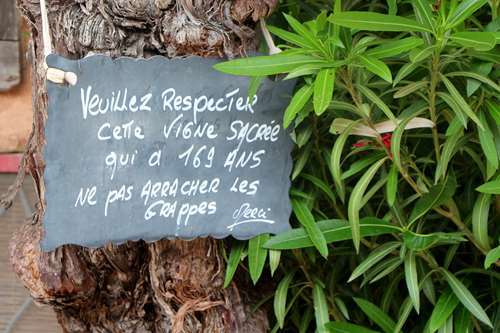 Veuillez Respecter
cette VIGNE SACRÉE
qui a 169 ANS
NE pas ARRACHER Les
GRAPPES Merci